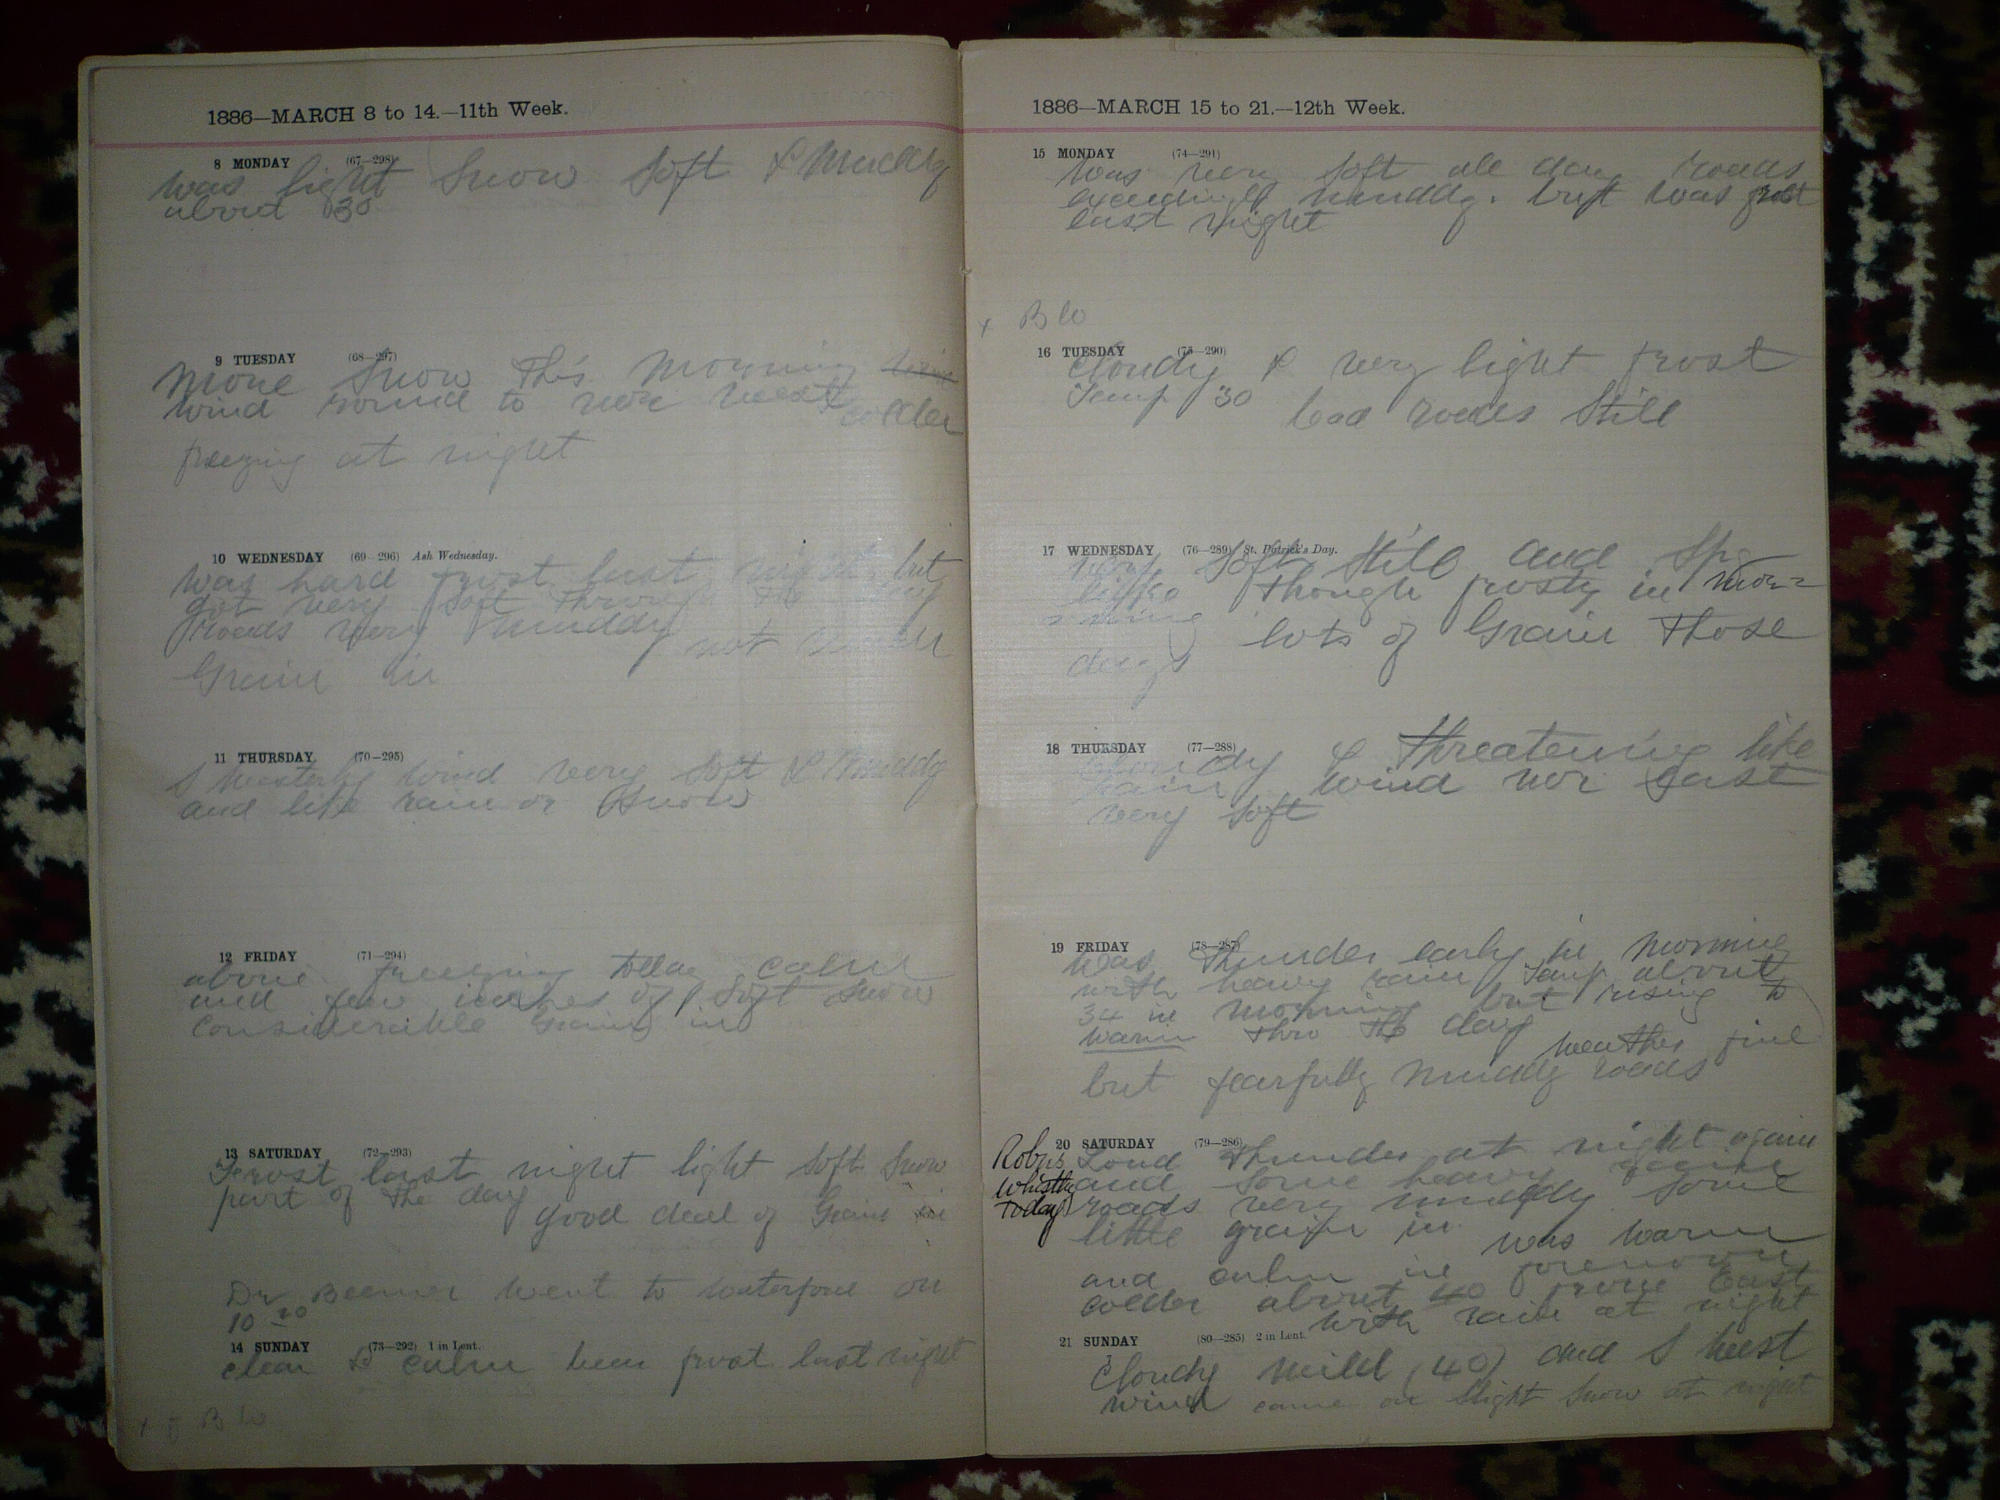 1886—MARCH 8 to 14.—11th Week.
8 MONDAY (67—298)
was light Snow Soft & Muddy
about 30
9 TUESDAY (68—297)
More Snow this Morning
wind round to nor west colder
freezing at night
10 WEDNESDAY (69—296) Ash Wednesday.
was hard frost last night but
got very soft through the day
roads very muddy not much
Grain in
11 THURSDAY (70—295)
S Westerly wind very soft & Muddy
and like rain or Snow
12 FRIDAY (71—294)
above freezing today calm
and few inches of soft Snow
considerable Grain in
13 SATURDAY (72—293)
Frost last night light soft Snow
part of the day
good deal of Grain in
Dr Beemer went to Waterford on
10 20
14 SUNDAY (73—292) 1 in Lent.
clear & calm keen frost last night
B W
1886—MARCH 15 to 21.—12th Week.
15 MONDAY (74—291)
Was very soft all day roads
exceedingly muddy. but was frost
last night
x B W
16 TUESDAY (75—290)
Cloudy & very light frost
Temp 30
bad roads Still
17 WEDNESDAY (76—289) St. Patrick's Day.
very soft Still and Spg
like though frosty in Mor=
ning
lots of Grain those
days
18 THURSDAY (77—288)
Cloudy & threatening like
rain wind nor East
very soft
19 FRIDAY (78—287)
Was thunder early in morning
with heavy rain Temp about
34 in morning but rising to
warm thro the day
weather fine
but fearfully Muddy roads
20 SATURDAY (79—286)
Robins Loud thunder at night again
whistle and some heavy raine
today roads very muddy some
little grain in was warm
and calm in forenoon
colder about 40 more East
with rain at night
21 SUNDAY (80—285) 2 in Lent.
Cloudy mild (40) and S West
wind came on slight Snow at night